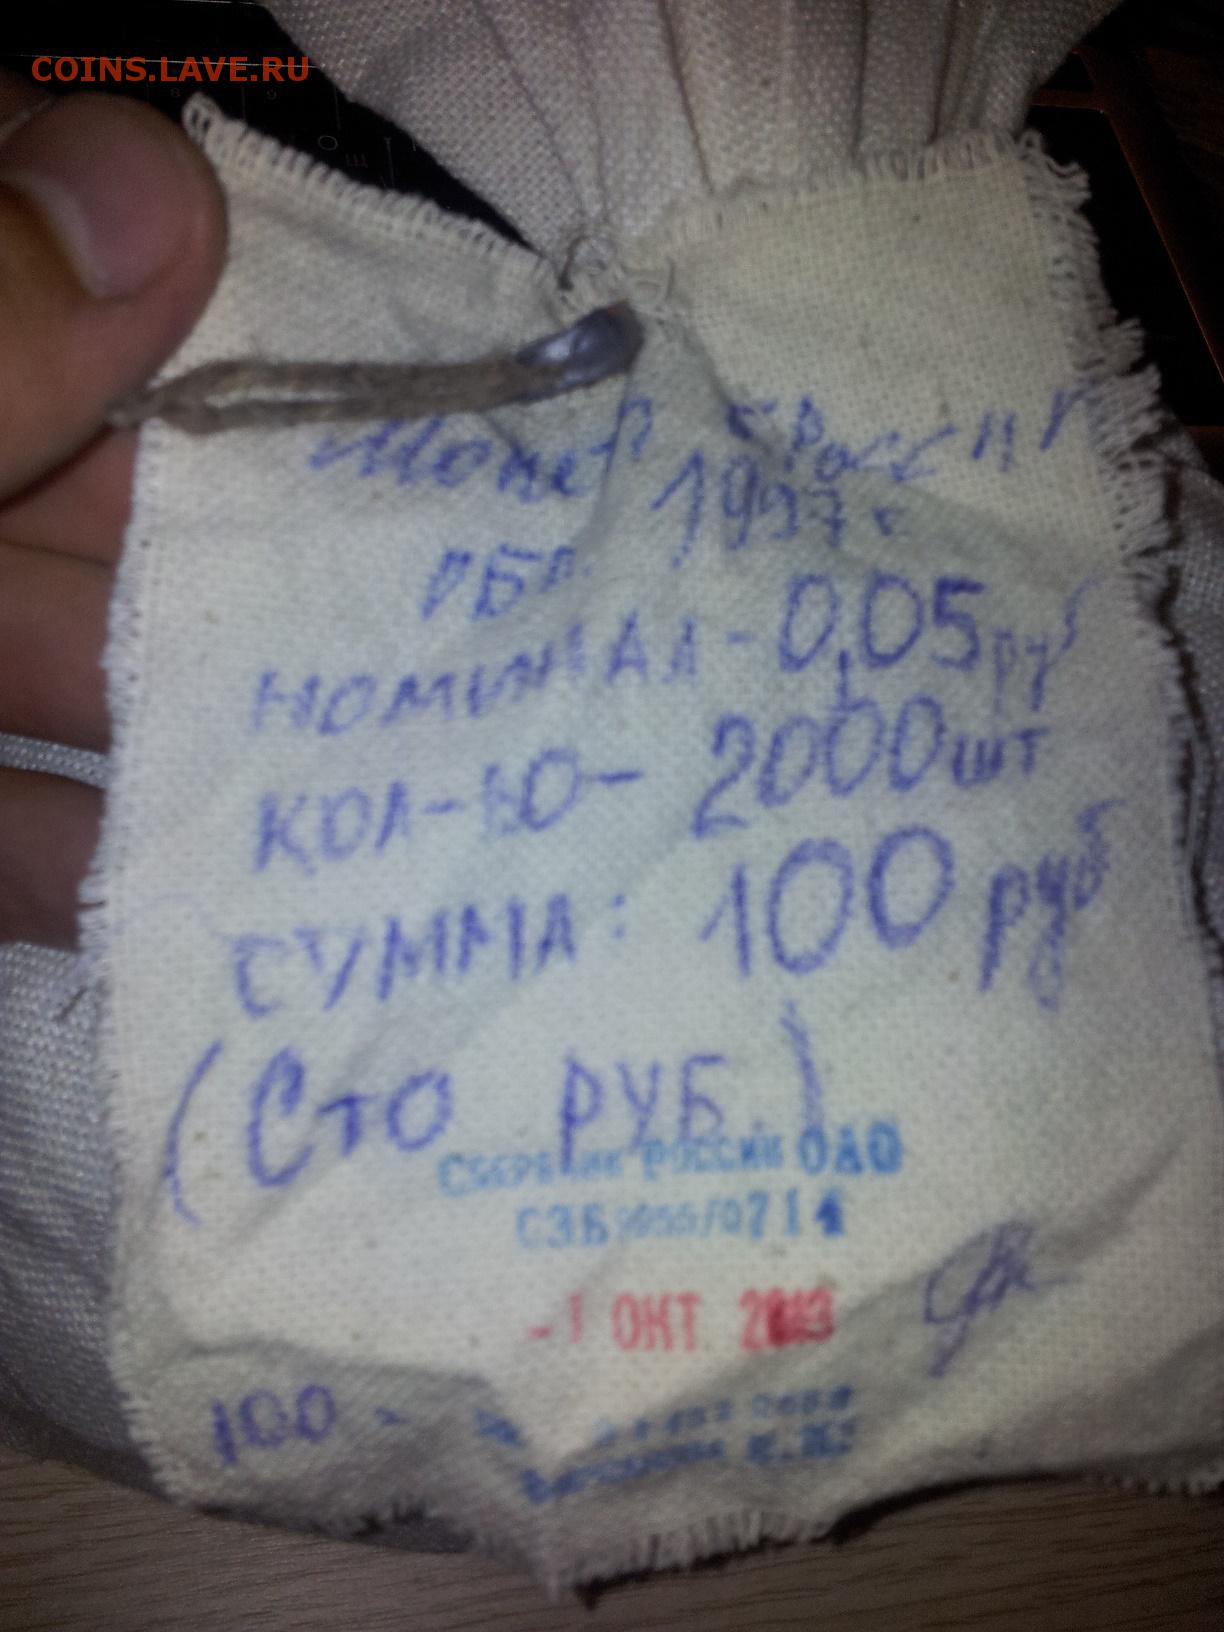 COINS.LAVE.RU
Монет Б России
обр. 1997 г.
НОМИНАЛ - 0,05 руб
КОЛ-ВО - 2000 шт
СУММА: 100 руб
(Сто РУБ.)
СБЕРБАНК РОССИИ ОАО
СЗБ 9055/0714
-1 ОКТ 2013
100 -